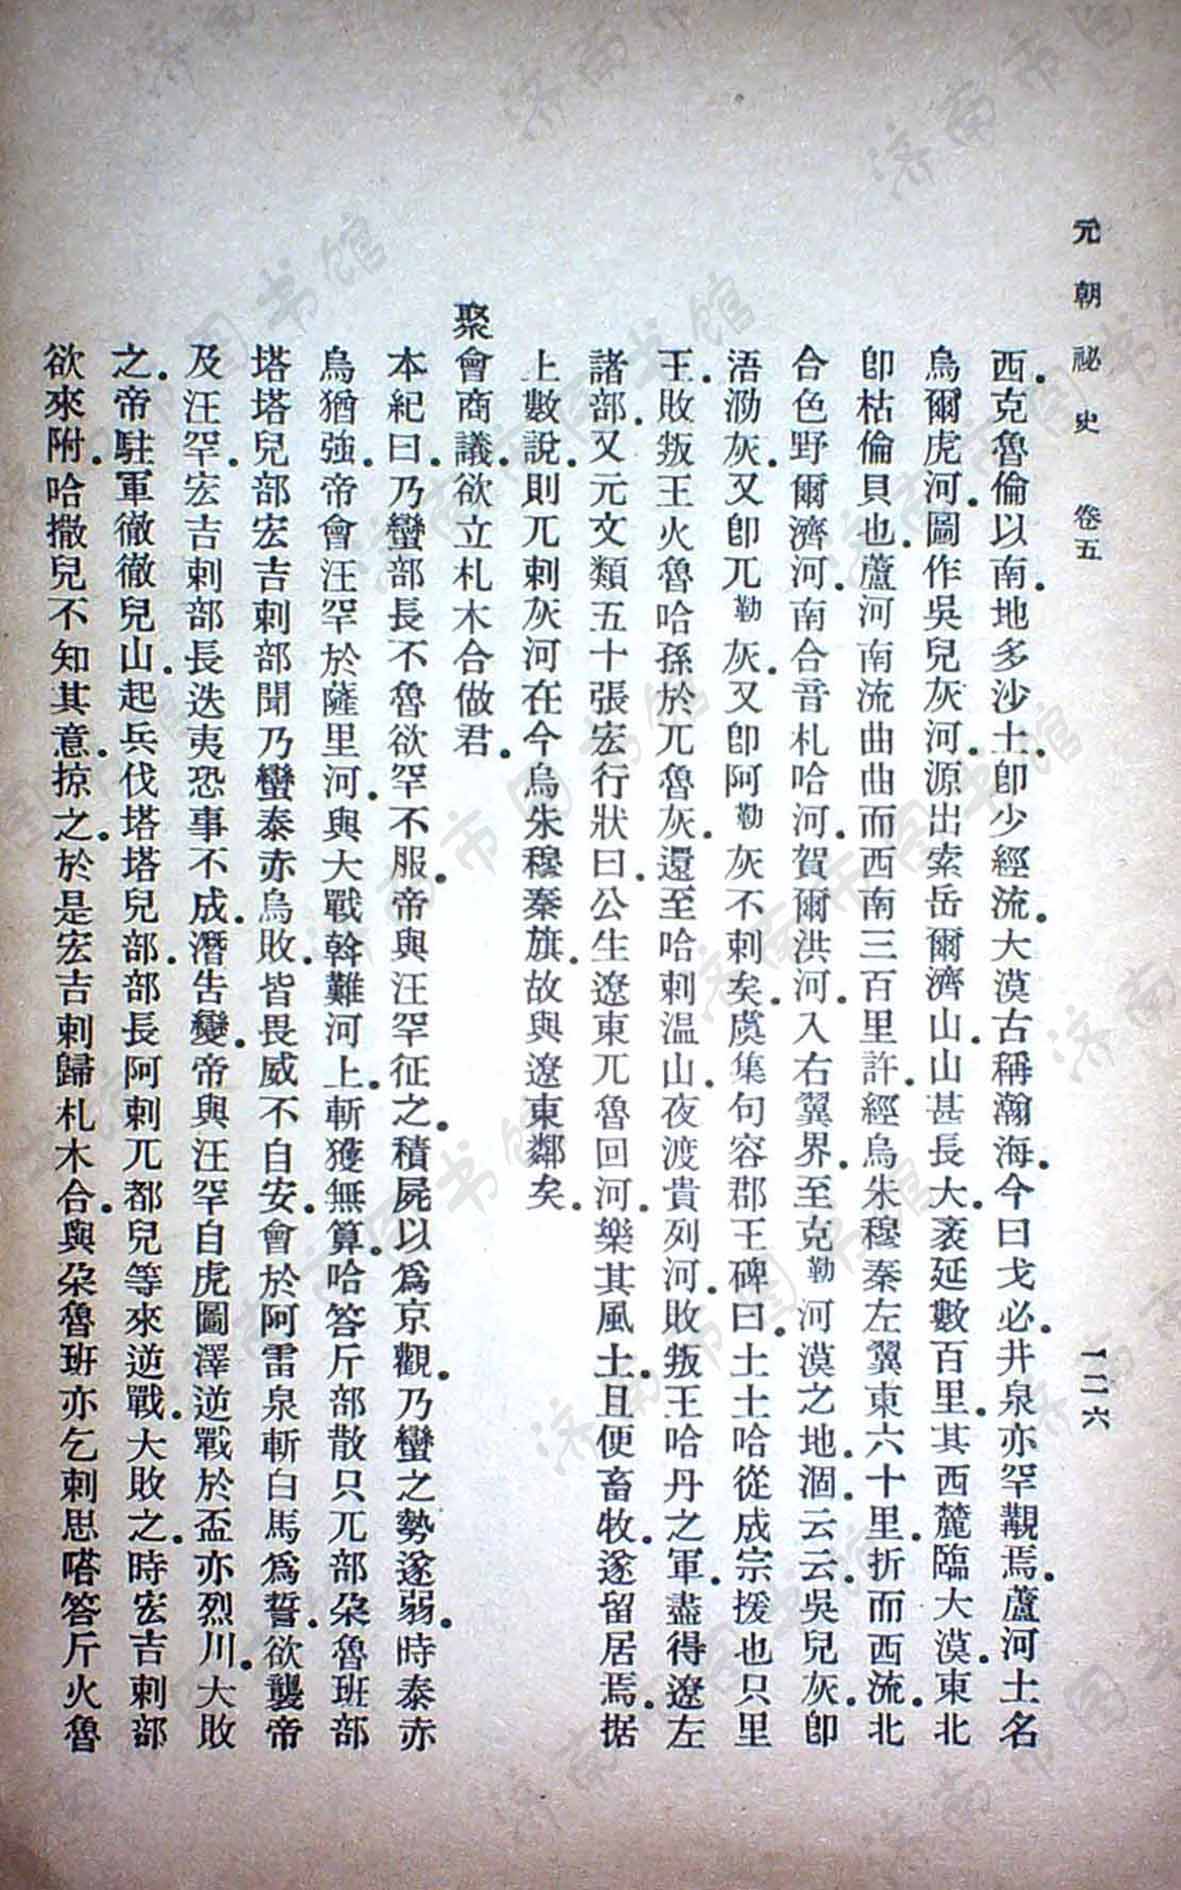 元朝祕史 卷五
一二六
西。克魯倫以南。地多沙土。卽少經流。大漠古稱瀚海。今曰戈必。井泉亦罕覯焉。蘆河土名
烏爾虎河。圖作吳兒灰河。源出索岳爾濟山。山甚長大。袤延數百里。其西麓臨大漠。東北
卽枯倫貝也。蘆河南流曲曲而西南三百里許。經烏朱穆秦左翼東六十里。折而西流。北
合色野爾濟河。南合音札哈河。賀爾洪河。入右翼界。至克勒河漠之地。涸。云云。吳兒灰。卽
浯泐灰。又卽兀勒灰。又卽阿勒灰不剌矣。虞集句容郡王碑曰。土土哈從成宗援也只里
王。敗叛王火魯哈孫於兀魯灰。還至哈剌温山。夜渡貴列河。敗叛王哈丹之軍。盡得遼左
諸部。又元文類五十張宏行狀曰。公生遼東兀魯回河。樂其風土。且便畜牧。遂留居焉。据
上數說。則兀剌灰河在今烏朱穆秦旗。故與遼東鄰矣。
聚會商議。欲立札木合做君。
本紀曰。乃蠻部長不魯欲罕不服。帝與汪罕征之。積屍以爲京觀。乃蠻之勢遂弱。時泰赤
烏猶強。帝會汪罕於薩里河。與大戰斡難河上。斬獲無算。哈答斤部散只兀部朶魯班部
塔塔兒部宏吉剌部聞乃蠻泰赤烏敗。皆畏威不自安。會於阿雷泉斬白馬爲誓。欲襲帝
及汪罕。宏吉剌部長迭夷恐事不成。潛吿變。帝與汪罕自虎圖澤逆戰於盃亦烈川。大敗
之。帝駐軍徹徹兒山。起兵伐塔塔兒部。部長阿剌兀都兒等來逆戰。大敗之。時宏吉剌部
欲來附。哈撒兒不知其意。掠之。於是宏吉剌歸札木合。與朶魯班亦乞剌思嗒答斤火魯